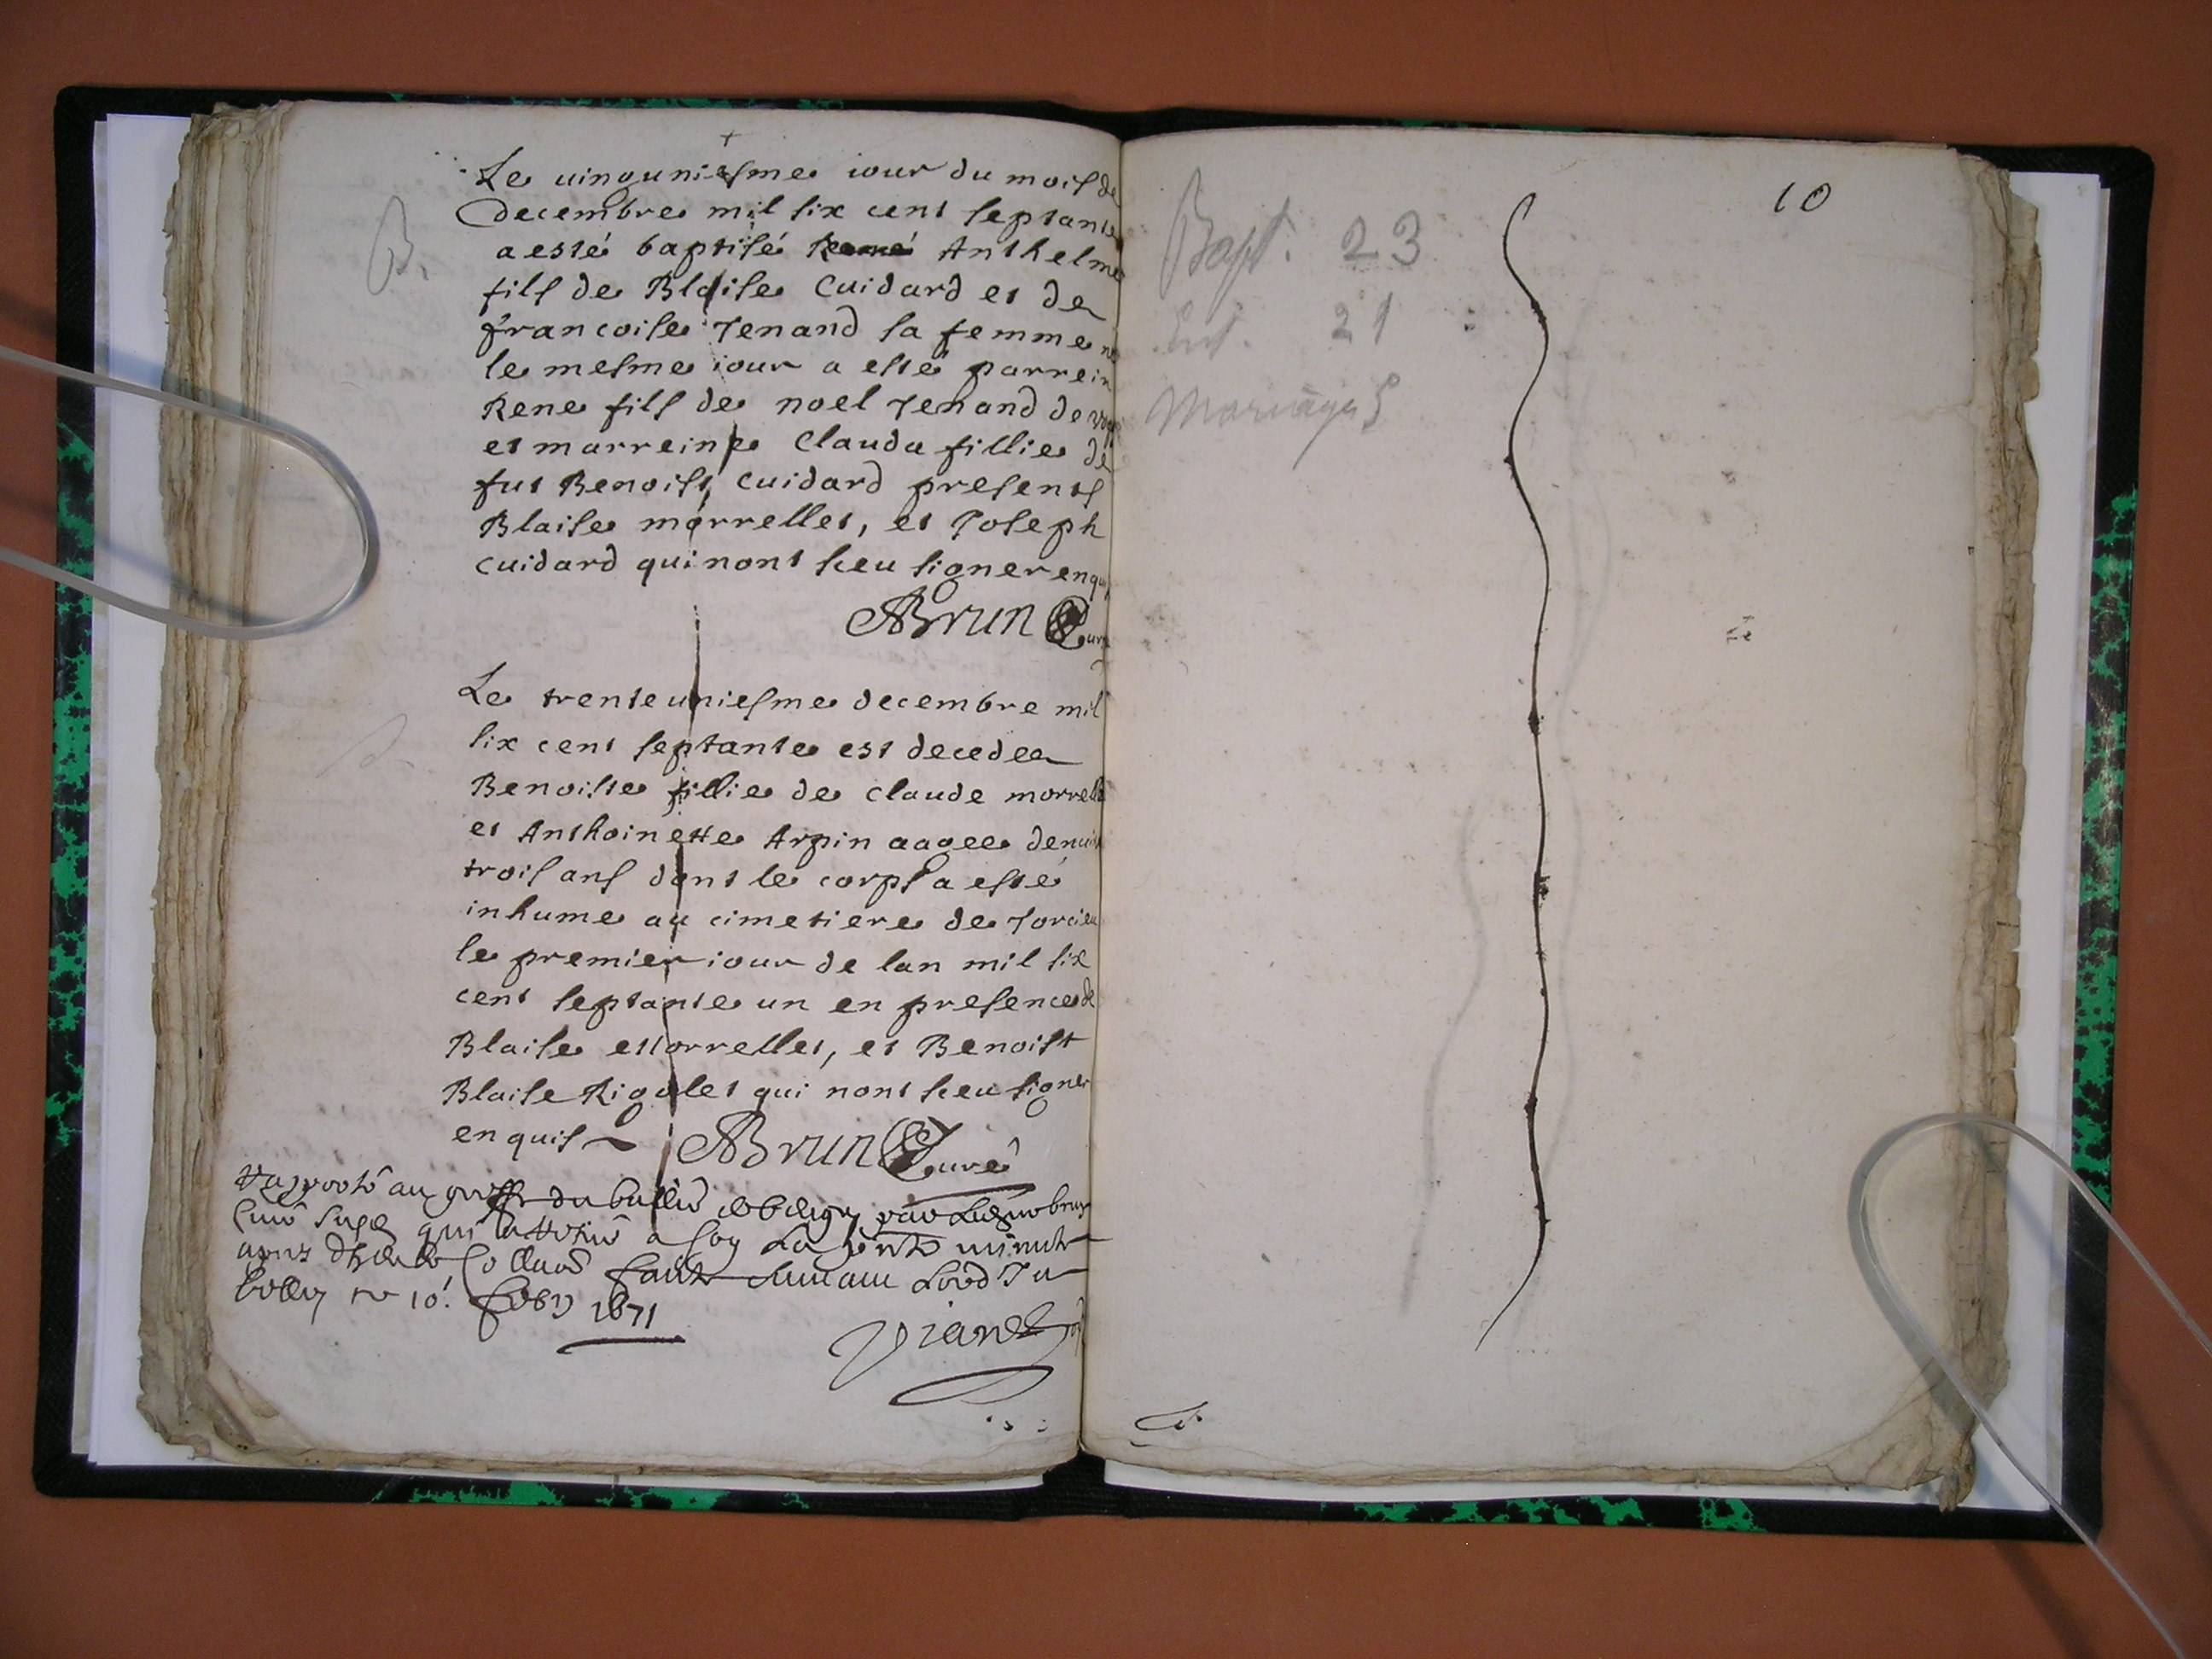 +
Le uinguniesme iour du mois de
B.
decembre mil six cent septante
a esté baptisé Anthelme
fils de Blaise Cuidard et de
francoise Tenand sa femme
le mesme iour a esté parrein
Rene fils de noel Tenand de
et marreine Clauda fillie de
fut Benoist Cuidard presents
Blaise morrellet, et Joseph
cuidard qui nont sceu signer enquis
ABrun Curé
Le trente uniesme decembre mil
six cent septante est decedee
Benoiste fillie de claude morrellet
et Anthoinette Arpin aagee denuiron
trois ans dont le corps a esté
inhume au cimetiere de Torcieu
le premier iour de lan mil six
cent septante un en presence de
Blaise Morrellet, et Benoist
Blaise Rigolet qui nont sceu signer
enquis ABrun Curé
du
qui a
1671
10
Bapt. 23
Ent. 21
Mariages 5